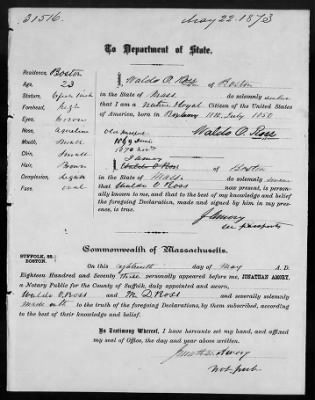 31516.
May 22. 1873
To Department of State.
Residence, Boston
Age, 23
Stature,
Forehead, high
Eyes, brown
Nose, aquiline
Mouth, small
Chin, small
Hair, Brown
Complexion,
Face, oval
I, Waldo O. Ross of Boston
in the State of Mass. do solemnly swear
that I am a native & loyal Citizen of the United States
of America, born in Roxbury 18th July 1850
Waldo O. Ross
I Amory
Waldo O Ross of Boston
in the State of Mass. do solemnly swear
that Waldo O Ross now present, is person-
ally known to me, and that to the best of my knowledge and belief
the foregoing Declaration, made and signed by him in my presence,
is true.
J Amory
Commonwealth of Massachusetts.
SUFFOLK, SS:
BOSTON.
On this eighteenth day of May A. D.
Eighteen Hundred and Seventy three personally appeared before me, JONATHAN AMORY,
a Notary Public for the County of Suffolk, duly appointed and sworn,
Waldo O. Ross and M. D Ross and severally solemnly
made oath to the truth of the foregoing Declarations, by them subscribed, according
to the best of their knowledge and belief.
In Testimony Whereof, I have hereunto set my hand, and affixed
my seal of Office, the day and year above written.
Jonathan Amory
Not Pub